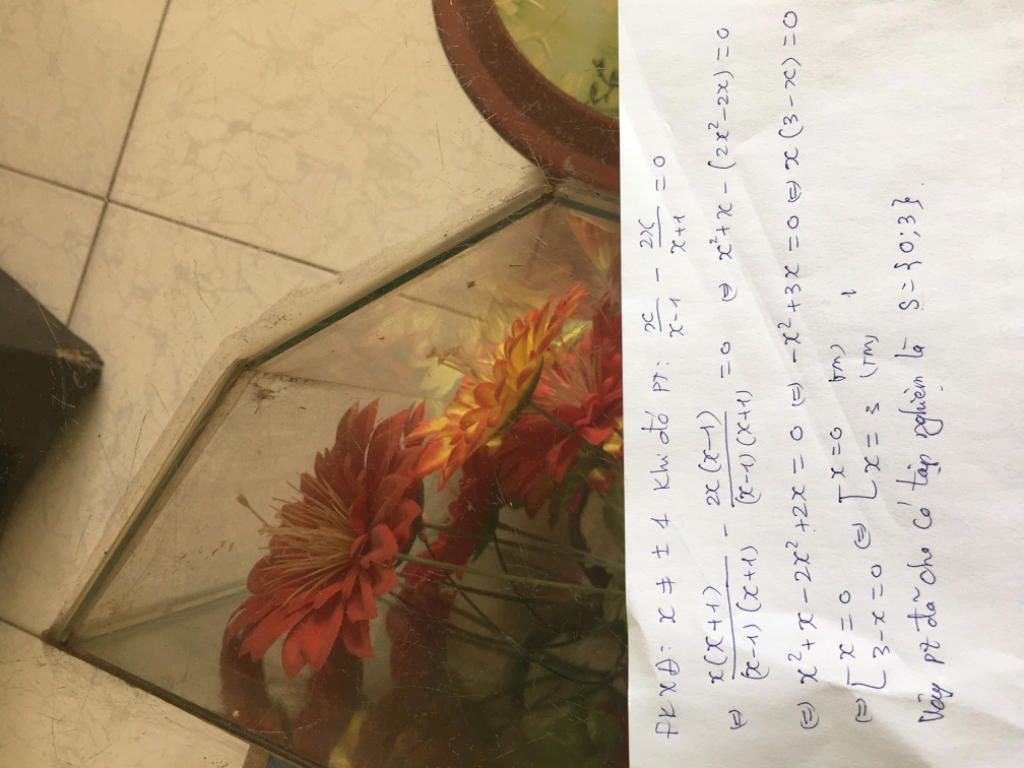 ĐKXĐ: x ≠ ± 1 Khi đó PT: x/(x-1) - 2x/(x+1) = 0
⇔ x(x+1)/((x-1)(x+1)) - 2x(x-1)/((x-1)(x+1)) = 0 ⇔ x²+x-(2x²-2x)=0
⇔ x²+x-2x²+2x=0 ⇔ -x²+3x=0 ⇔ x(3-x)=0
⇔ [ x=0 ⇔ [ x=0 (TM)
[ 3-x=0 [ x=3 (TM)
Vậy pt đã cho có tập nghiệm là S={0;3}.